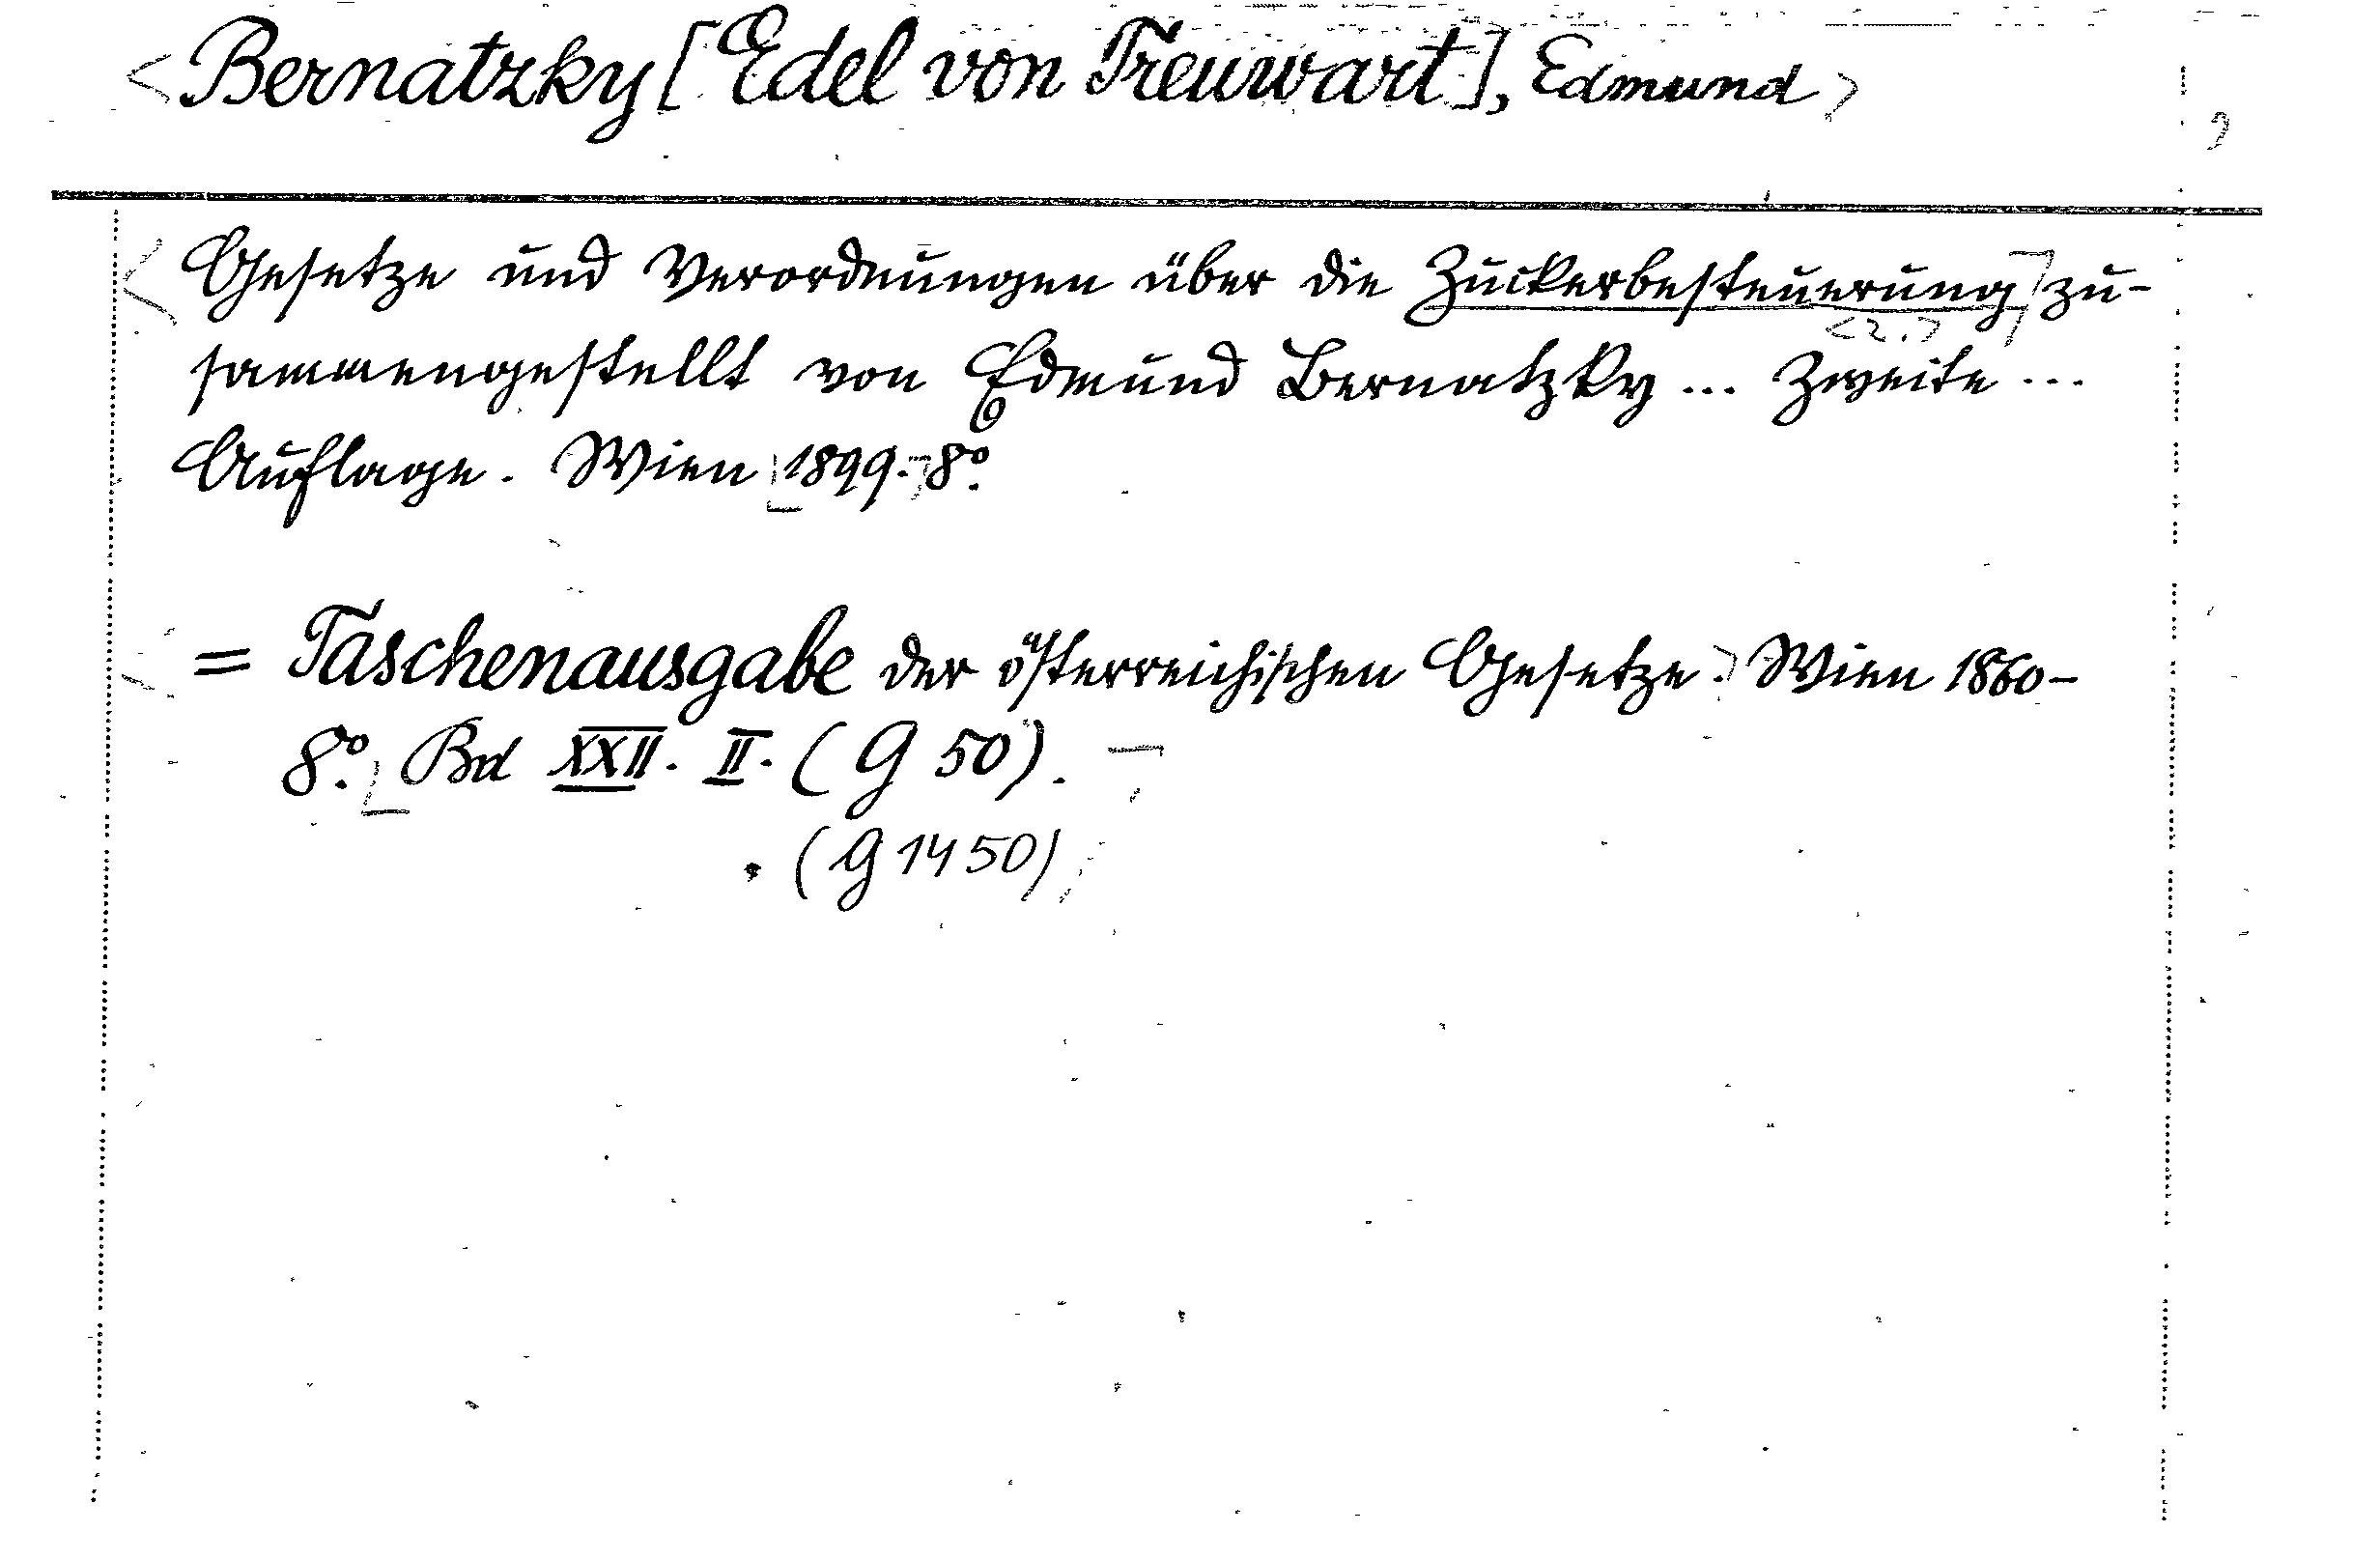 <Bernatzky [Edel von Treuwart], Edmund>
<Gesetze und Verordnungen über die Zuckerbesteuerung zu-
<2.>
sammengestellt von Edmund Bernatzky ... Zweite ...
Auflage. Wien 1899. 8°.
= Taschenausgabe der österreichischen Gesetze. Wien 1860-
8°. Bd XXII. II. (G 50).
(G 1450)